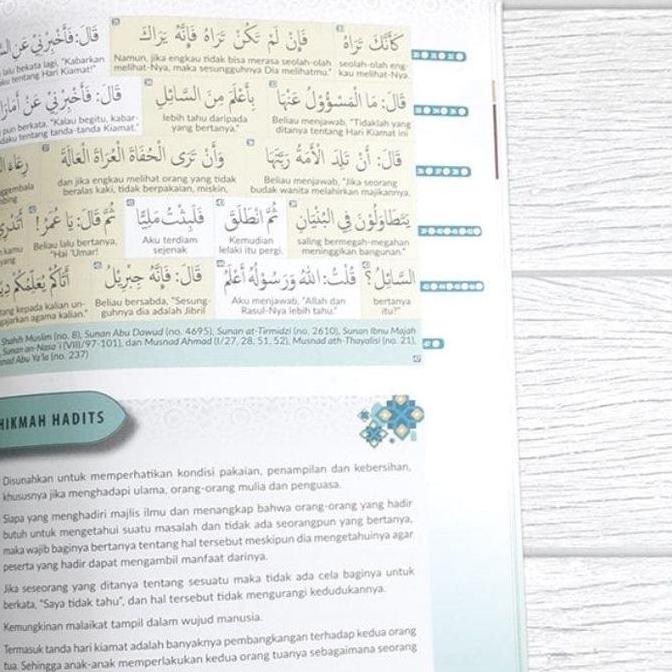 كَأَنَّكَ تَرَاهُ فَإِنْ لَمْ تَكُنْ تَرَاهُ فَإِنَّهُ يَرَاكَ قَالَ: فَأَخْبِرْنِيْ عَنِ
seolah-olah eng- Namun, jika engkau tidak bisa merasa seolah-olah lalu bekata lagi, "Kabarkan
kau melihat-Nya. melihat-Nya, maka sesungguhnya Dia melihatmu." tentang Hari Kiamat!"
قَالَ: مَا الْمَسْؤُوْلُ عَنْهَا بِأَعْلَمَ مِنَ السَّائِلِ قَالَ: فَأَخْبِرْنِيْ عَنْ
Beliau menjawab, "Tidaklah yang lebih tahu daripada pun berkata, "Kalau begitu, kabar-
ditanya tentang Hari Kiamat ini yang bertanya." tentang tanda-tanda Kiamat."
قَالَ: أَنْ تَلِدَ الْأَمَةُ رَبَّتَهَا وَأَنْ تَرَى الْحُفَاةَ الْعُرَاةَ الْعَالَةَ
Beliau menjawab, "Jika seorang dan jika engkau melihat orang yang tidak
budak wanita melahirkan majikannya, beralas kaki, tidak berpakaian, miskin,
يَتَطَاوَلُوْنَ فِي الْبُنْيَانِ ثُمَّ انْطَلَقَ فَلَبِثْتُ مَلِيًّا ثُمَّ قَالَ: يَا عُمَرُ!
saling bermegah-megahan Kemudian Aku terdiam Beliau lalu bertanya, kamu
meninggikan bangunan." lelaki itu pergi. sejenak "Hai 'Umar! yang
السَّائِلُ؟ قُلْتُ: اللهُ وَرَسُوْلُهُ أَعْلَمُ قَالَ: فَإِنَّهُ جِبْرِيْلُ أَتَاكُمْ يُعَلِّمُكُمْ
bertanya Aku menjawab, "Allah dan Beliau bersabda, "Sesung- kepada kalian un-
itu?" Rasul-Nya lebih tahu." guhnya dia adalah Jibril agama kalian."
Shahih Muslim (no. 8), Sunan Abu Dawud (no. 4695), Sunan at-Tirmidzi (no. 2610), Sunan Ibnu Majah
Sunan an-Nasa'i (VIII/97-101), dan Musnad Ahmad (I/27, 28, 51, 52), Musnad ath-Thayalisi (no. 21),
Abu Ya'la (no. 237)
HIKMAH HADITS
Disunahkan untuk memperhatikan kondisi pakaian, penampilan dan kebersihan,
khususnya jika menghadapi ulama, orang-orang mulia dan penguasa.
Siapa yang menghadiri majlis ilmu dan menangkap bahwa orang-orang yang hadir
butuh untuk mengetahui suatu masalah dan tidak ada seorangpun yang bertanya,
maka wajib baginya bertanya tentang hal tersebut meskipun dia mengetahuinya agar
peserta yang hadir dapat mengambil manfaat darinya.
Jika seseorang yang ditanya tentang sesuatu maka tidak ada cela baginya untuk
berkata, "Saya tidak tahu", dan hal tersebut tidak mengurangi kedudukannya.
Kemungkinan malaikat tampil dalam wujud manusia.
Termasuk tanda hari kiamat adalah banyaknya pembangkangan terhadap kedua orang
tua. Sehingga anak-anak memperlakukan kedua orang tuanya sebagaimana seorang